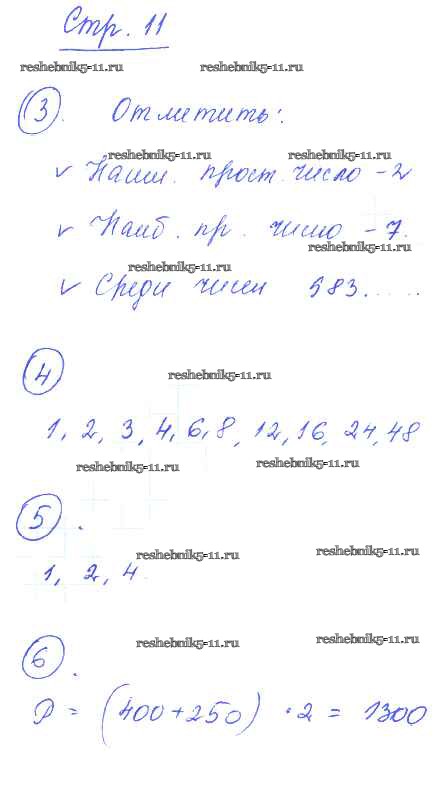 Стр. 11
reshebnik5-11.ru reshebnik5-11.ru
3. Отметить:
reshebnik5-11.ru reshebnik5-11.ru
✓ Наим. прост. число - 2
✓ Наиб. пр. число - 7.
reshebnik5-11.ru
reshebnik5-11.ru
✓ Среди чисел 583.....
4 reshebnik5-11.ru
1, 2, 3, 4, 6, 8, 12, 16, 24, 48
reshebnik5-11.ru reshebnik5-11.ru
5.
reshebnik5-11.ru reshebnik5-11.ru
1, 2, 4
6.
reshebnik5-11.ru reshebnik5-11.ru
P = (400+250) · 2 = 1300